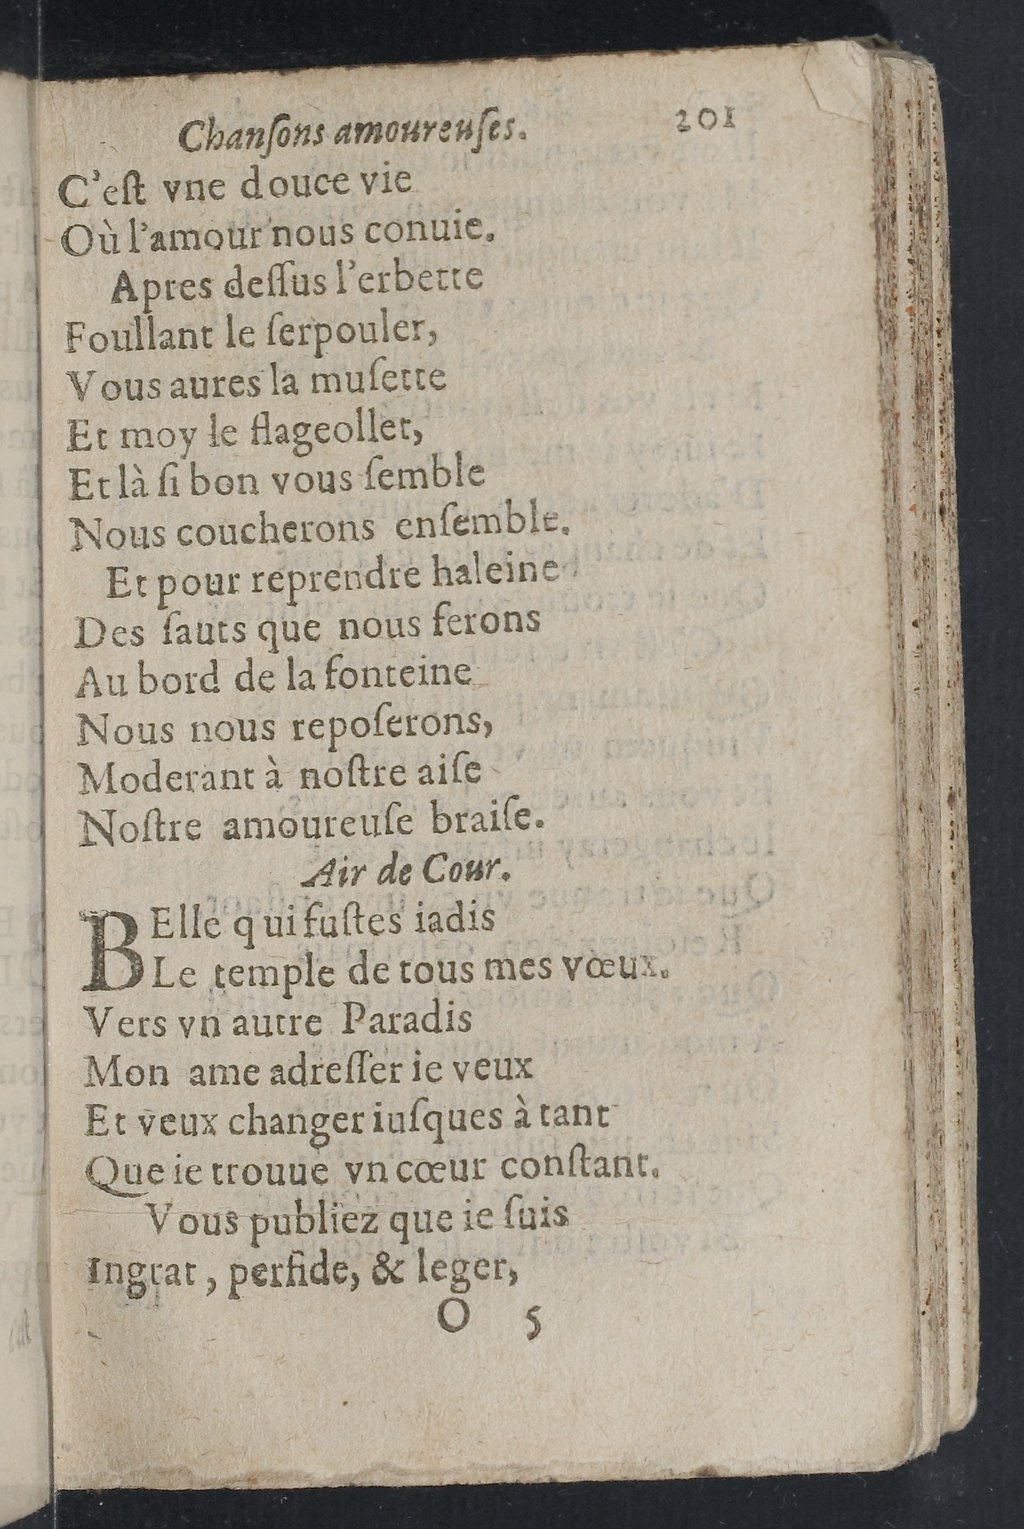 Chanſons amoureuſes. 201
C'eſt vne douce vie
Où l'amour nous conuie.
Apres deſſus l'erbette
Foullant le ſerpouler,
Vous aures la muſette
Et moy le flageollet,
Et là ſi bon vous ſemble
Nous coucherons enſemble.
Et pour reprendre haleine
Des ſauts que nous ferons
Au bord de la fonteine
Nous nous repoſerons,
Moderant à noſtre aiſe
Noſtre amoureuſe braiſe.
Air de Cour.
BElle qui fuſtes iadis
Le temple de tous mes vœux.
Vers vn autre Paradis
Mon ame adreſſer ie veux
Et veux changer iuſques à tant
Que ie trouue vn cœur conſtant.
Vous publiez que ie ſuis
Ingrat, perfide, & leger,
O 5